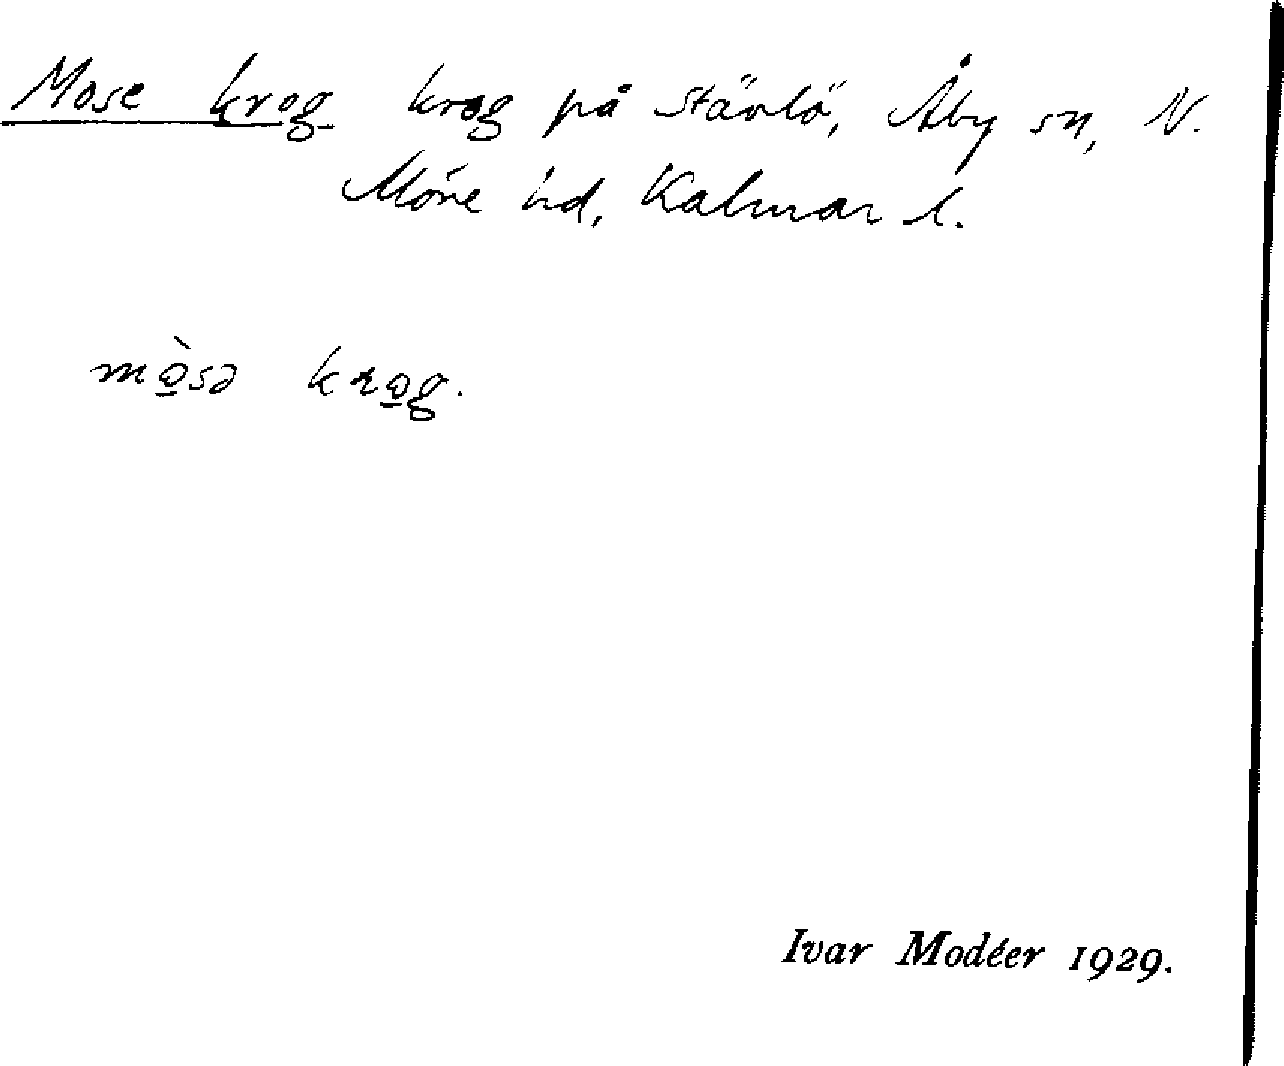 Mose krog krog på Stävlö, Åby sn, N.
Möre hd, Kalmar l.
mò̱sə kro̱g.
Ivar Modéer 1929.